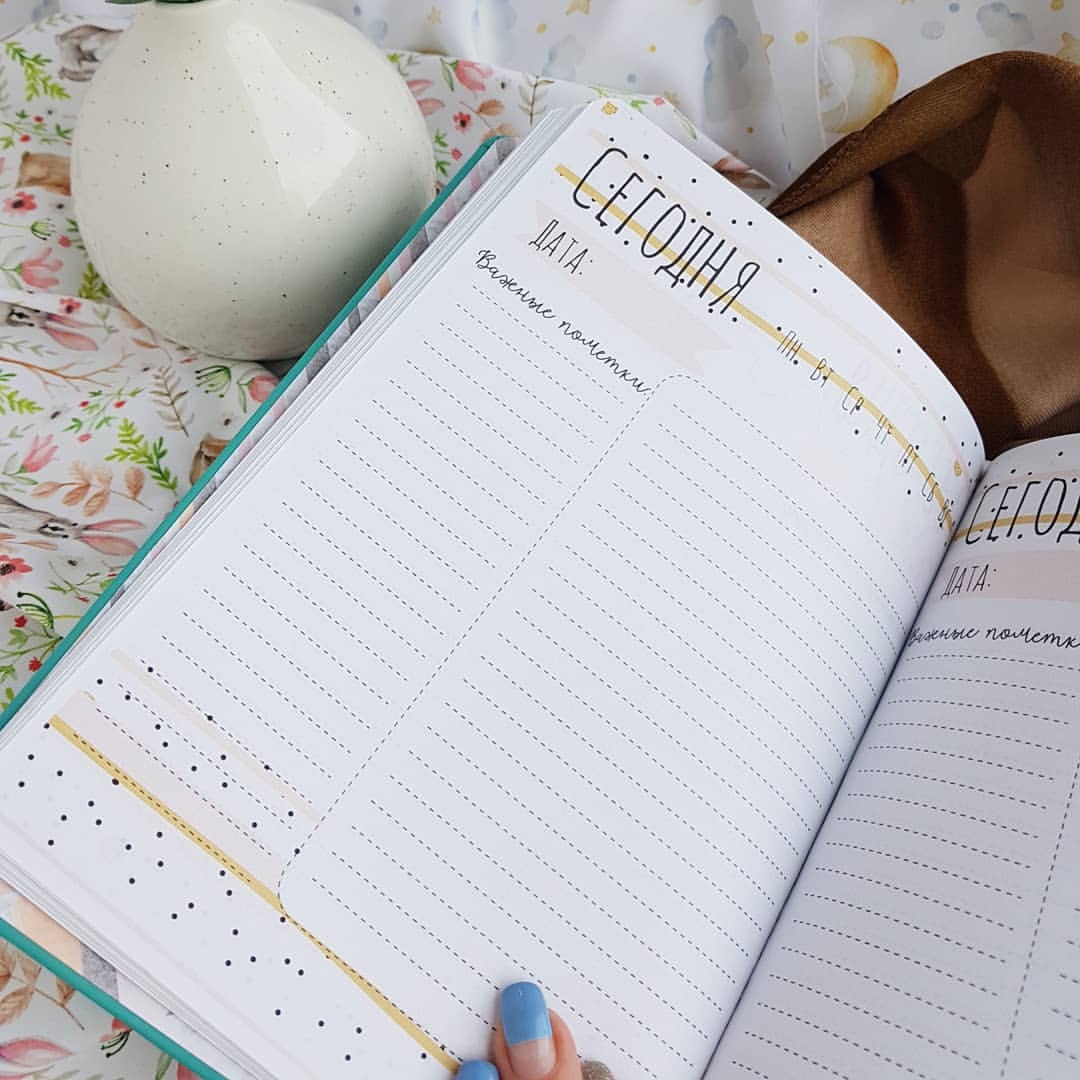 СЕГОДНЯ
ДАТА:
ПН ВТ СР ЧТ ПТ СБ ВС
Важные пометки
СЕГОД
ДАТА:
Важные пометк